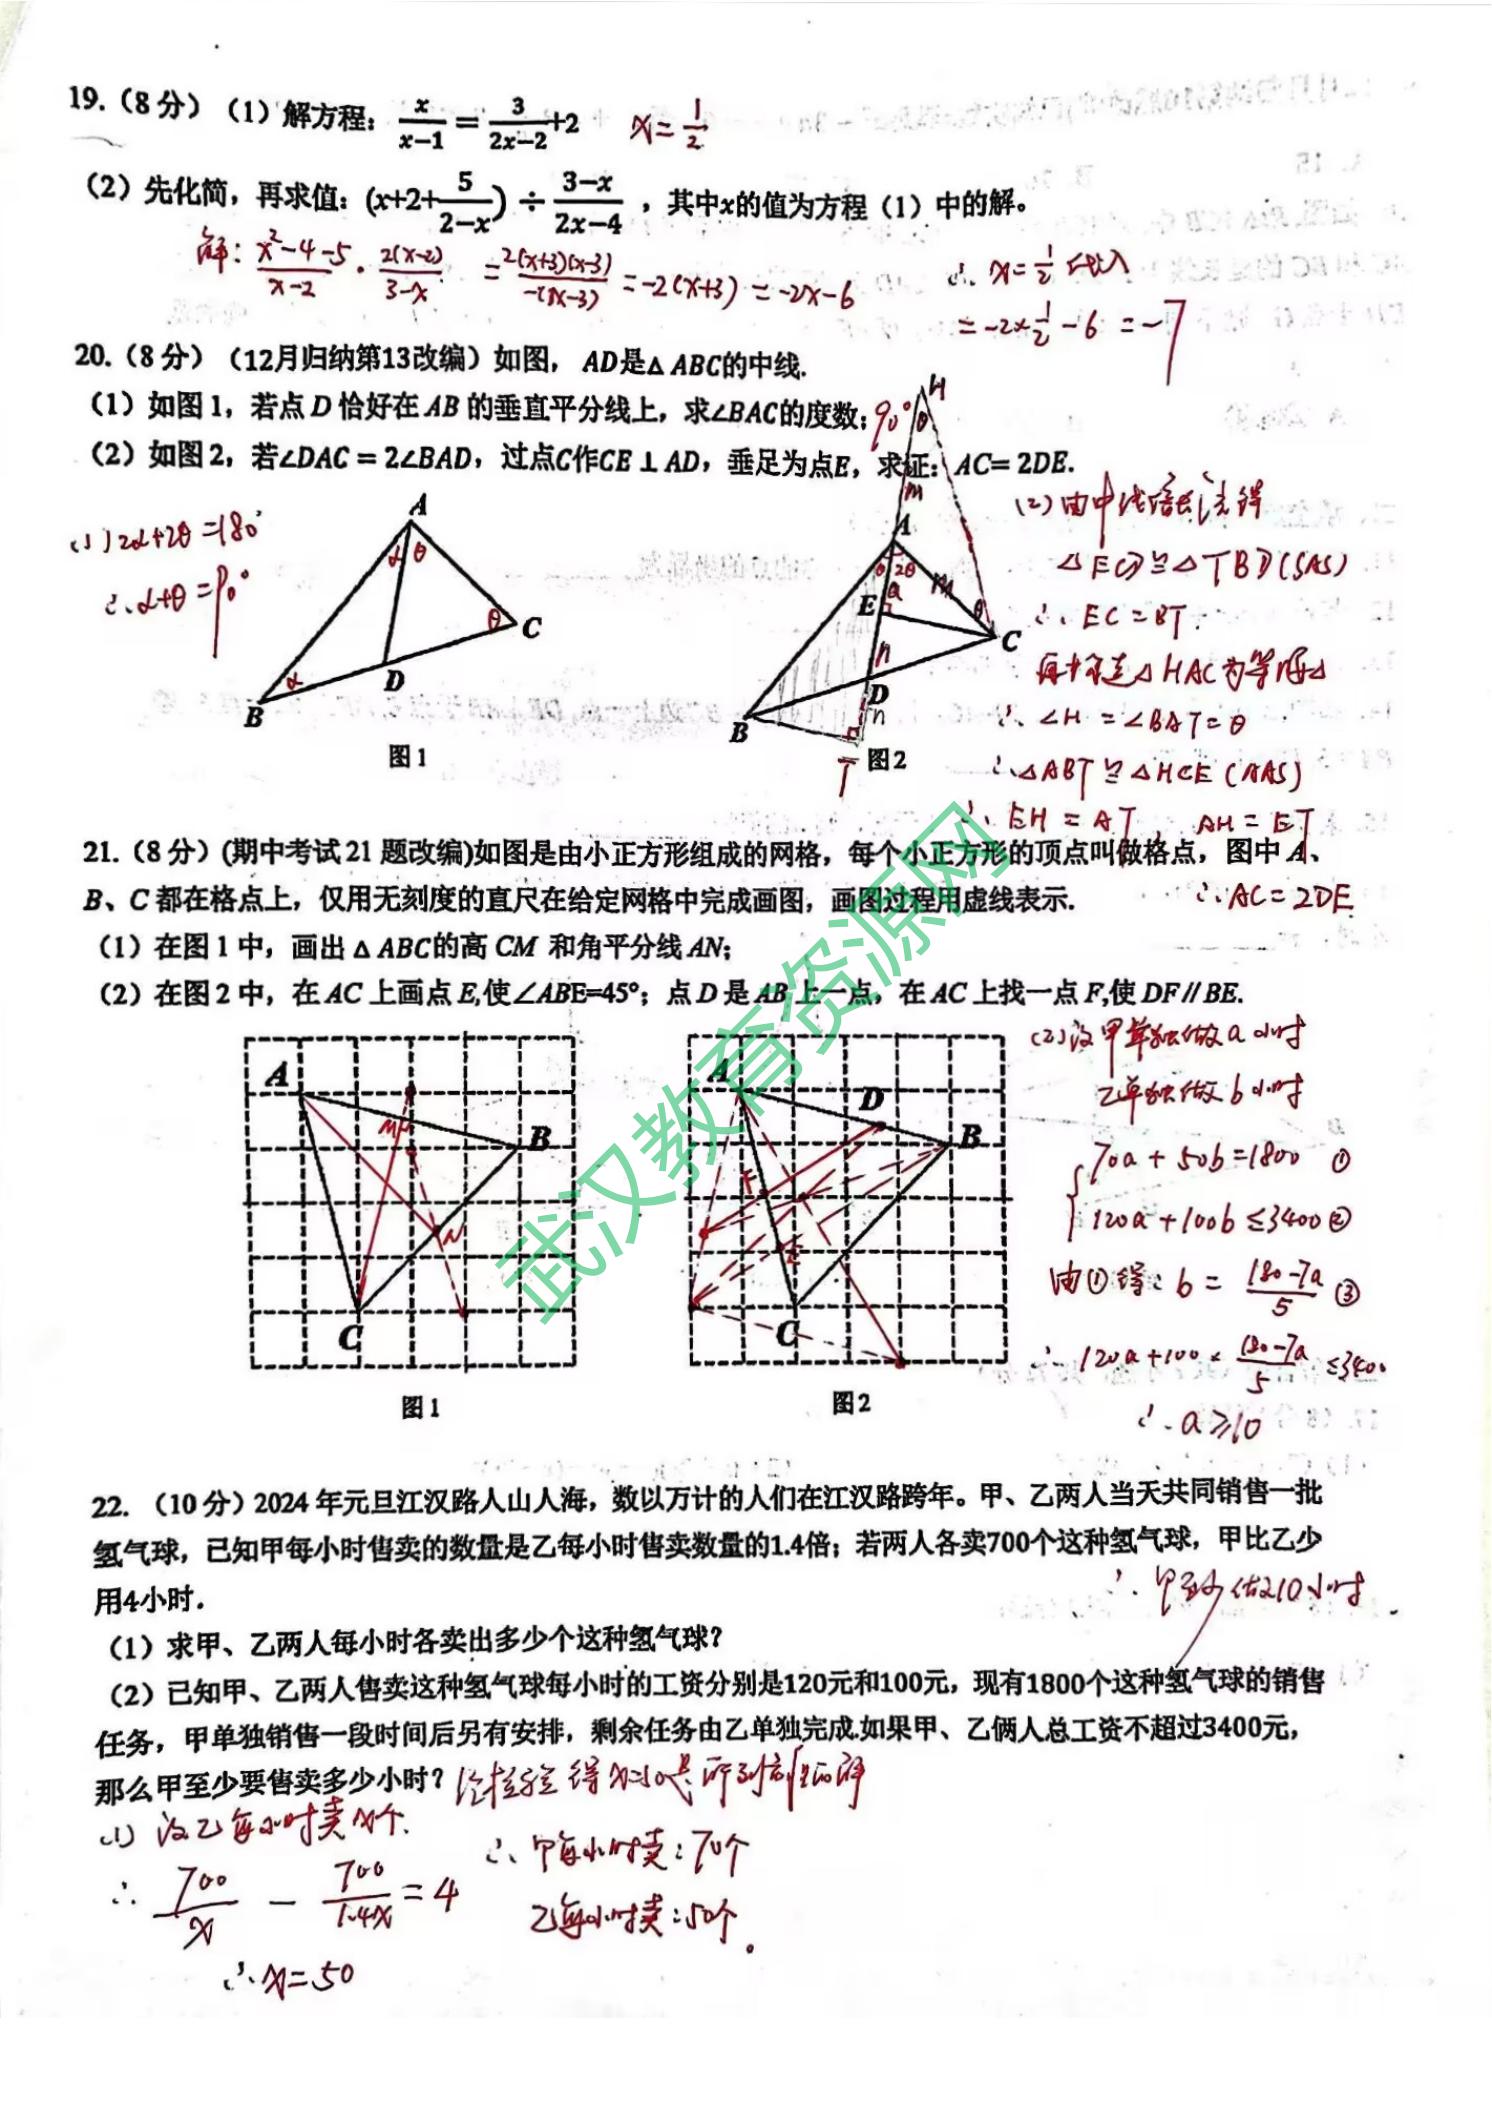 19.（8 分）（1）解方程： x/(x−1) = 3/(2x−2) +2 x = 1/2
（2）先化简，再求值：(x+2+ 5/(2−x)) ÷ (3−x)/(2x−4) ，其中x的值为方程（1）中的解。
解：(x²−4−5)/(x−2) · 2(x−2)/(3−x) = 2(x+3)(x−3)/−(x−3) = −2(x+3) = −2x−6
∴ x = 1/2 代入
= −2× 1/2 −6 = −7
20.（8 分）（12月归纳第13改编）如图， AD是△ABC的中线.
（1）如图 1，若点 D 恰好在 AB 的垂直平分线上，求∠BAC的度数; 90°
（2）如图 2，若∠DAC = 2∠BAD，过点C作CE⊥AD，垂足为点E，求证：AC= 2DE.
(1) 2α+2θ=180°
∴ α+θ=90°
A
α θ
θ
C
D
α
B
图 1
H
θ
m
A
θ 2θ
a
m
E
θ
C
n
D
n
B
T
图 2
(2) 由中线倍长法得
△ECD≌△TBD(SAS)
∴ EC = BT.
再构造△HAC为等腰△
∴ ∠H = ∠BAT = θ
∴ △ABT≌△HCE(AAS)
∴ EH = AT, AH = ET
∴ AC = 2DE.
21.（8 分）(期中考试 21 题改编)如图是由小正方形组成的网格，每个小正方形的顶点叫做格点，图中 A、
B、C 都在格点上，仅用无刻度的直尺在给定网格中完成画图，画图过程用虚线表示.
（1）在图 1 中，画出△ABC的高 CM 和角平分线 AN;
（2）在图 2 中，在 AC 上画点 E,使∠ABE=45°；点 D 是 AB 上一点，在 AC 上找一点 F,使 DF∥BE.
A
M
B
N
C
图 1
A
D
B
F
E
C
图 2
武汉教育资源网
(2) 设甲单独做a小时
乙单独做b小时
{ 70a + 50b = 1800 ①
120a + 100b ≤ 3400 ②
由①得：b = (180−7a)/5 ③
∴ 120a+100× (180−7a)/5 ≤3400
∴ a≥10
22. （10 分）2024 年元旦江汉路人山人海，数以万计的人们在江汉路跨年。甲、乙两人当天共同销售一批
氢气球，已知甲每小时售卖的数量是乙每小时售卖数量的1.4倍；若两人各卖700个这种氢气球，甲比乙少
用4小时.
∴ 甲至少做10小时
（1）求甲、乙两人每小时各卖出多少个这种氢气球？
（2）已知甲、乙两人售卖这种氢气球每小时的工资分别是120元和100元，现有1800个这种氢气球的销售
任务，甲单独销售一段时间后另有安排，剩余任务由乙单独完成.如果甲、乙俩人总工资不超过3400元，
那么甲至少要售卖多少小时？
经检验得x=50是所列方程的解
(1) 设乙每小时卖x个.
∴ 甲每小时卖：70个
∴ 700/x − 700/1.4x = 4
乙每小时卖：50个.
∴ x = 50